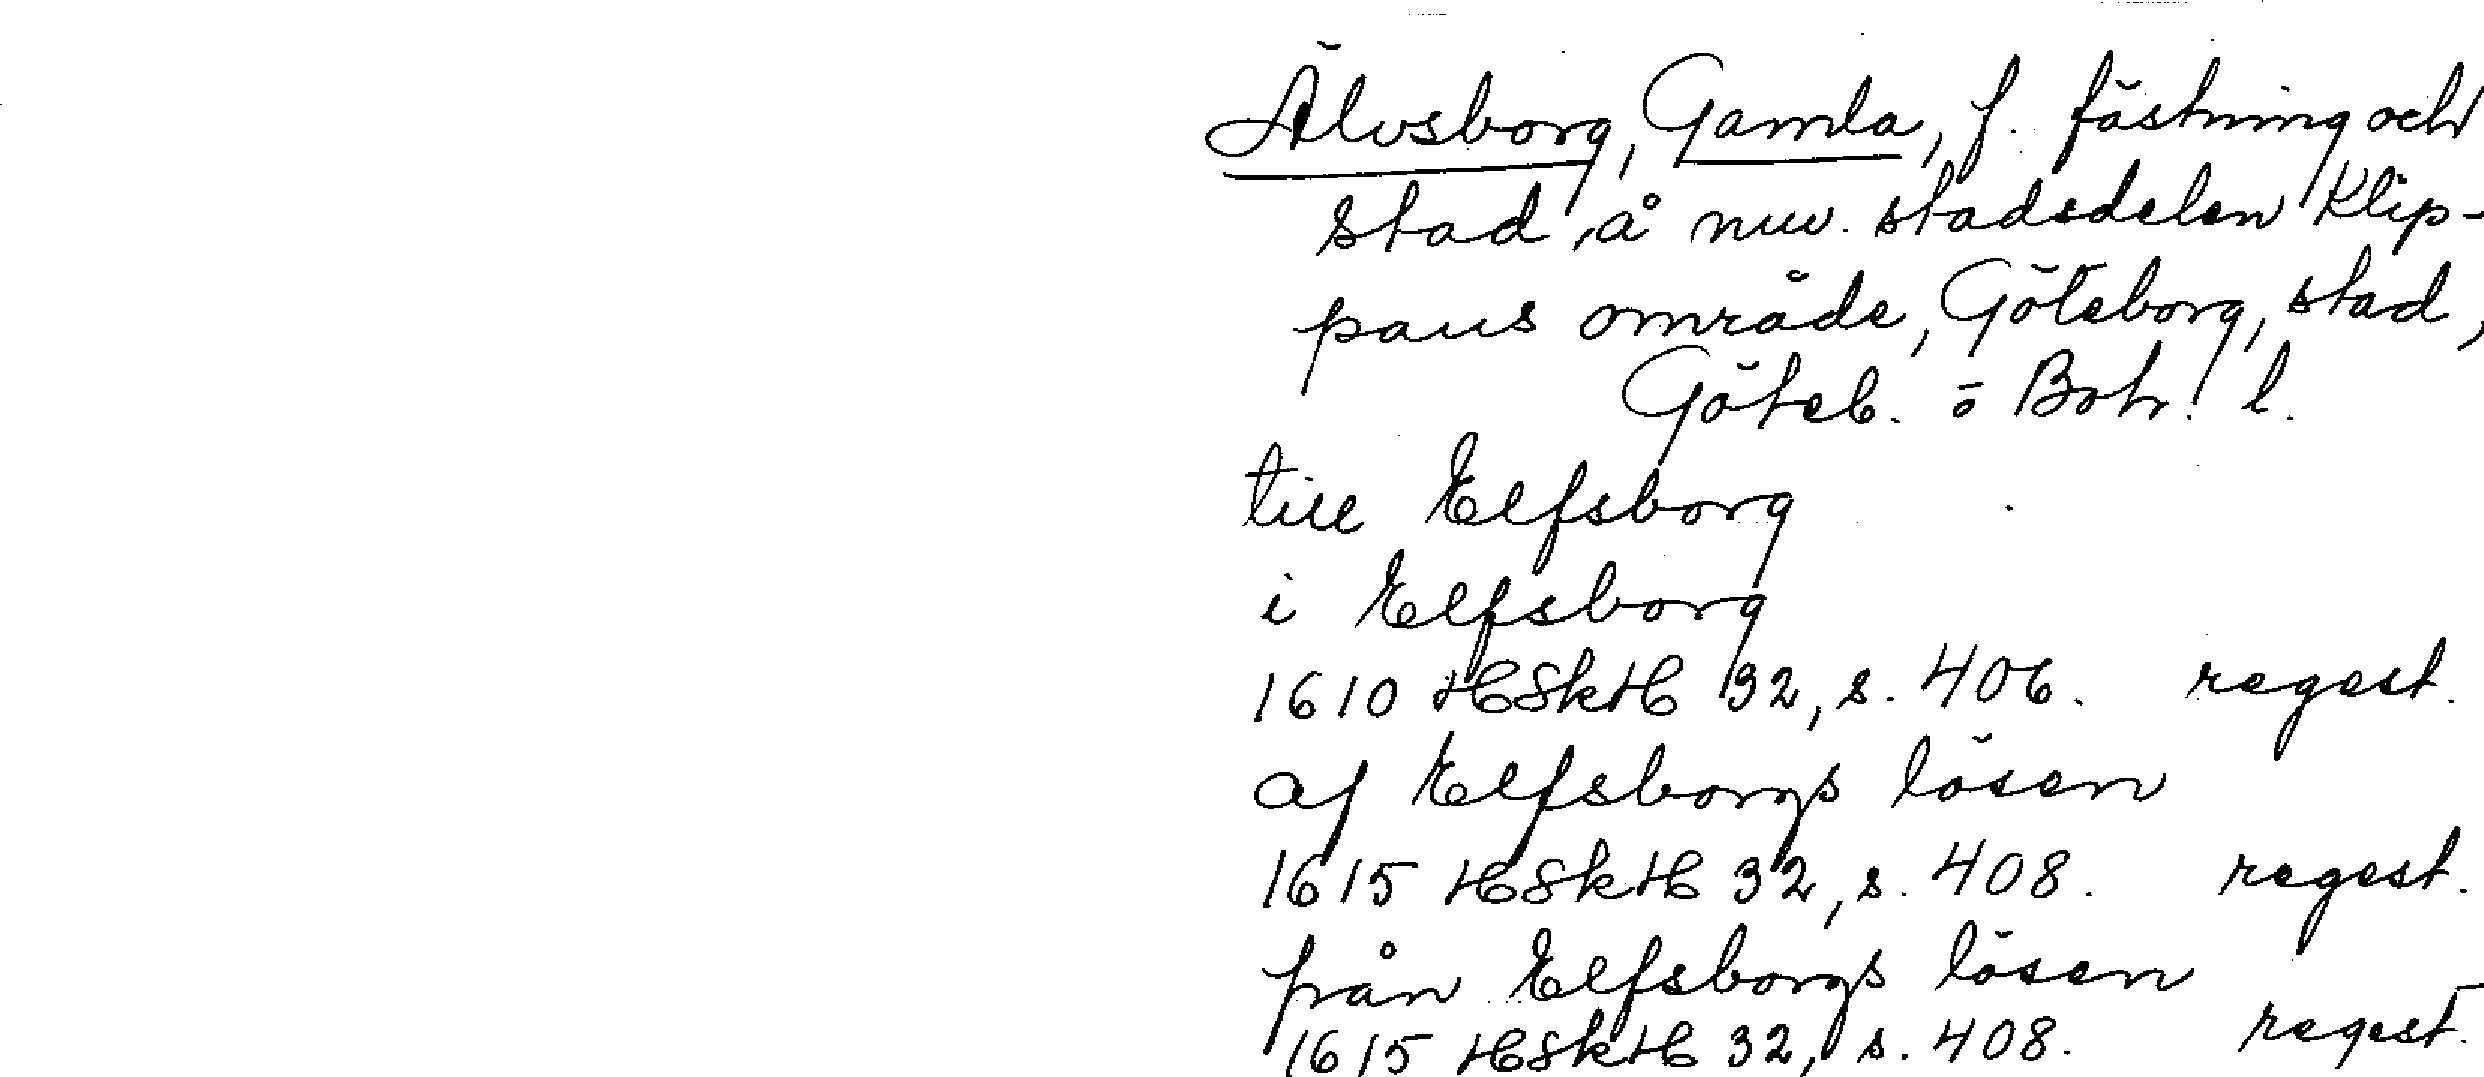 Älvsborg, Gamla, f. fästning och
stad, å nuv. stadsdelen Klip-
pans område, Göteborg, stad,
Göteb. o Boh. l.
till Elfsborg
i Elfsborg
1610 HSkH 32, s. 406. regest.
af Elfsborgs lösen
1615 HSkH 32, s. 408. regest.
från Elfsborgs lösen
1615 HSkH 32, s. 408. regest.